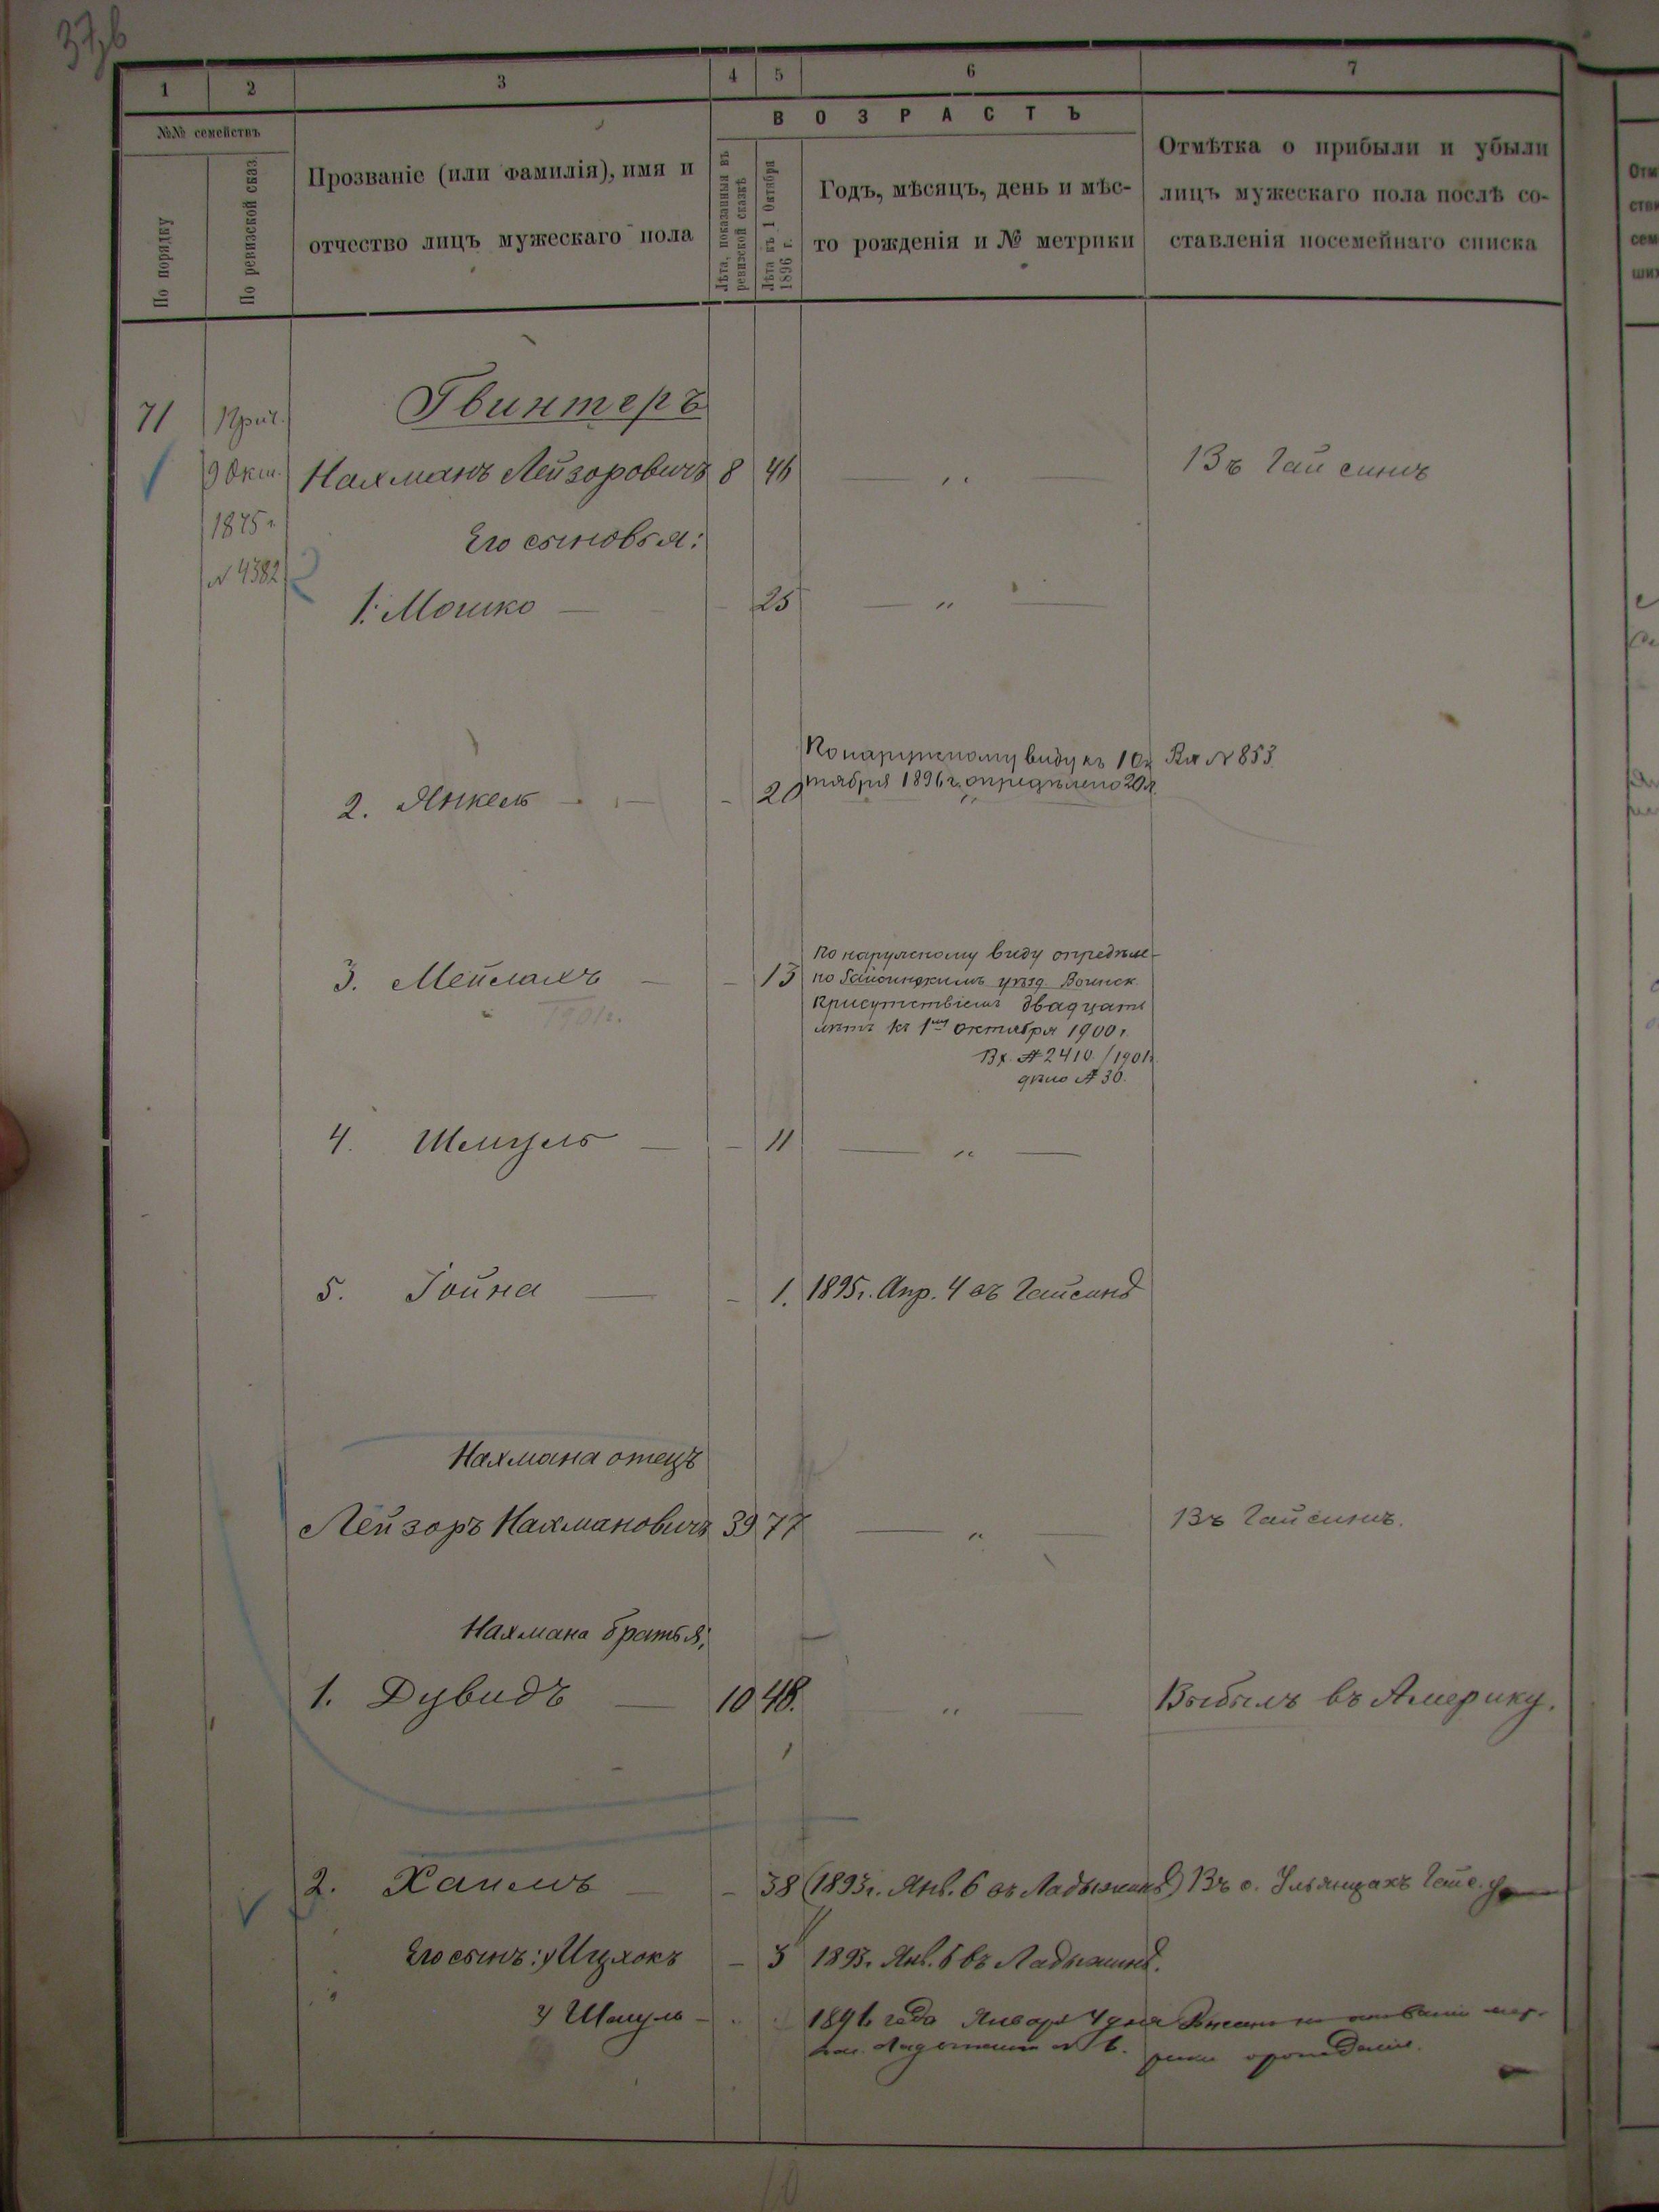 37,6
1 2 3 4 5 6 7
№№ семействъ
По порядку
По ревизской сказ.
Прозваніе (или фамилія), имя и
отчество лицъ мужескаго пола
ВОЗРАСТЪ
Лѣта, показанныя въ
ревизской сказкѣ
Лѣта къ 1 Октября
1896 г.
Годъ, мѣсяцъ, день и мѣс-
то рожденія и № метрики
Отмѣтка о прибыли и убыли
лицъ мужескаго пола послѣ со-
ставленія посемейнаго списка
71 Прич. Гвинтеръ
9 Окт. Нахманъ Лейзоровичъ 8 46 — „ — Въ Гайсинѣ
1875 г.
Его сыновья:
№ 4382
1. Мошко — - 25 — „ —
По наружному виду къ 1 Ок Вх № 853
тября 1896 г. опредѣлено 20 л.
2. Янкель — - 20 „
По наружному виду опредѣле-
3. Мейлахъ — - 13 но Гайсинскимъ уѣзд. Воинск.
1901 г. Присутствіемъ двадцать
лѣтъ къ 1му октября 1900 г.
Вх. № 2410/1901 г.
дѣло № 30.
4. Шмуль — - 11 — „ —
5. Іойна — - 1. 1895 г. Апр. 4 въ Гайсинѣ
Нахмана отецъ
Лейзоръ Нахмановичъ 39 77 — „ — Въ Гайсинѣ.
Нахмана братья:
1. Дувидъ — 10 48. „ — Выбылъ въ Америку.
2. Хаимъ — - 38 (1893 г. Янв. 6 въ Ладыжинѣ) Въ с. Ульяницахъ Гайс. у
Его сынъ: Ицхокъ - 3 1893 г. Янв. 6 въ Ладыжинѣ.
Шмуль - 1896 года Января 4 дня